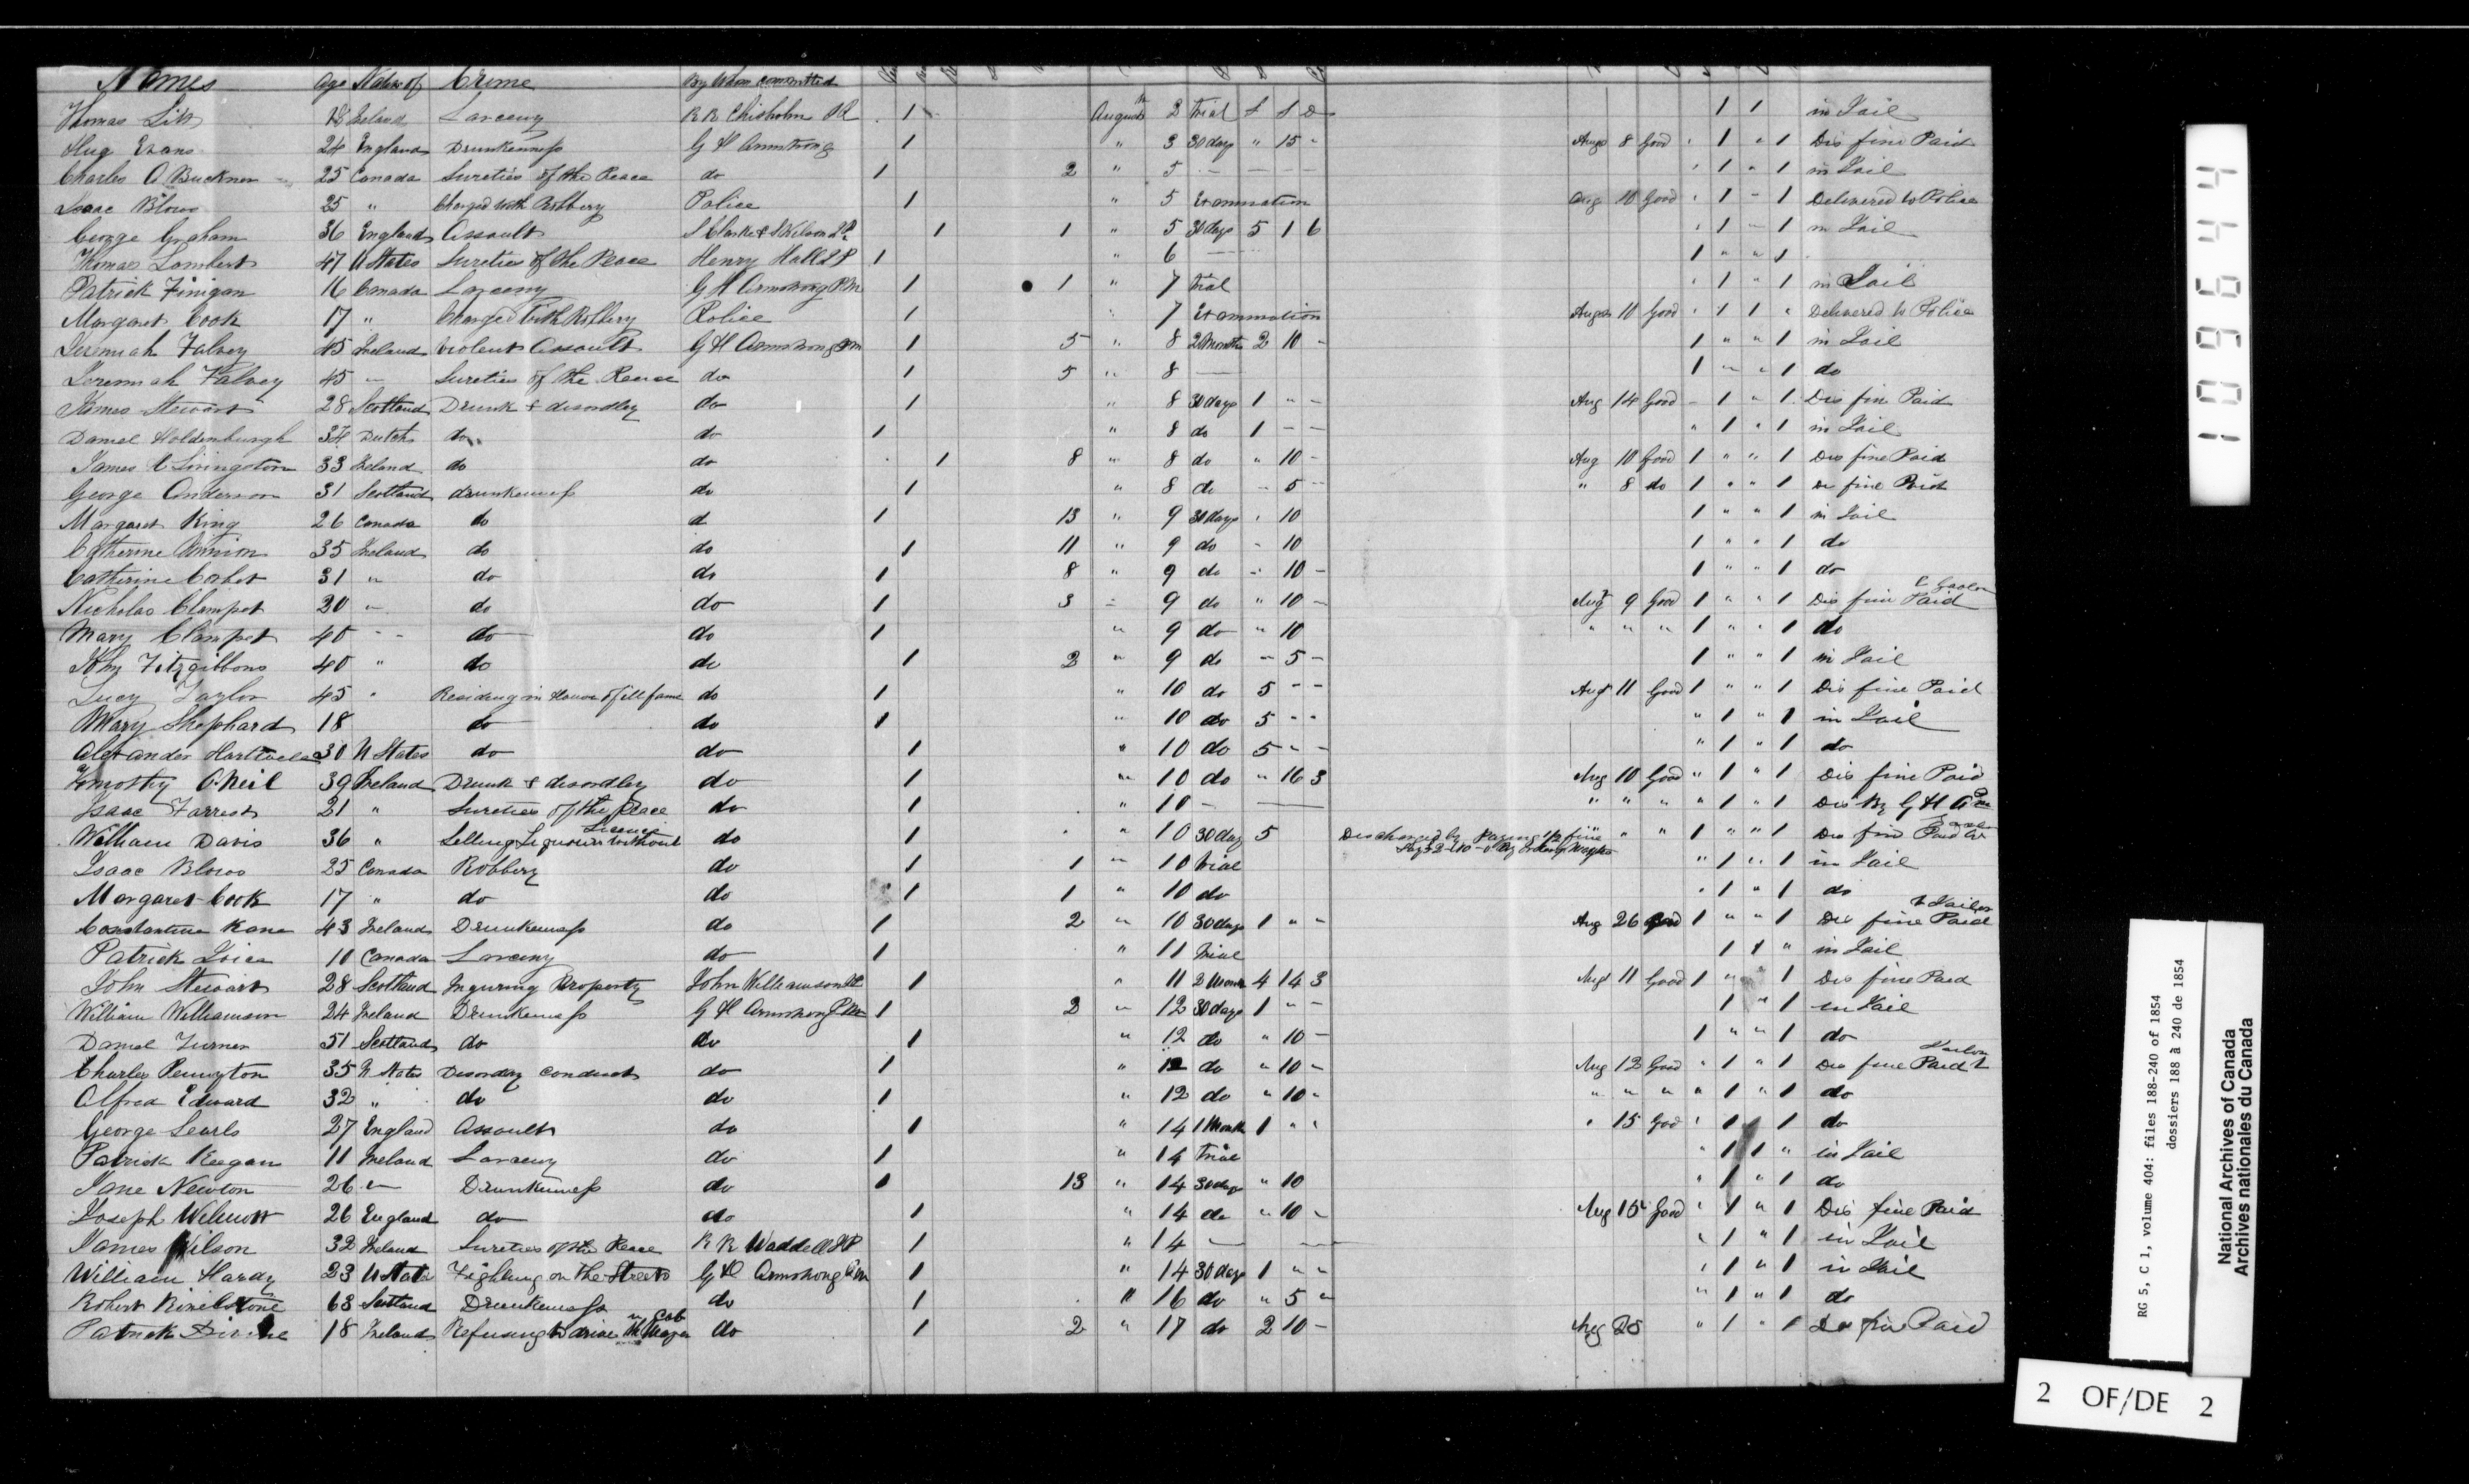 Names Age Native of Crime By Whom committed
Thomas 18 Ireland Larceny R R Chisholm 1 August 2 trial £ S D 1 1 in Jail
Hug Evans 24 England Drunkenness G H Armstrong 1 " 3 30 days " 15 - Aug 8 Good " 1 " 1 Dis fine Paid
Charles A Buckner 25 Canada Sureties of the Peace do 1 2 " 5 - " 1 " 1 in Jail
Isaac Blows 25 " Charged with Robbery Police 1 " 5 Examination Aug 10 Good " 1 - 1 Delivered to Police
George Graham 36 England Assault 1 1 " 5 30 days 5 1 6 " 1 - 1 in Jail
Thomas Lambert 47 U States Sureties of the Peace Henry Hall J P 1 " 6 — 1 " " 1
Patrick Finigan 16 Canada Larceny G H Armstrong P M 1 1 " 7 trial " 1 " 1 in Jail
Margaret Cook 17 " Charged with Robbery Police 1 " 7 Examination Aug 10 Good " 1 1 " Delivered to Police
Jeremiah Falvey 45 Ireland Violent Assault G H Armstrong P M 1 5 " 8 2 Months 2 10 - 1 " " 1 in Jail
Jeremiah Falvey 45 " Sureties of the Peace do 1 5 " 8 — 1 " " 1 do
James Stewart 28 Scotland Drunk & disordley do 1 " 8 30 days 1 " - Aug 14 Good - 1 " 1 Dis fine Paid
Daniel Holdenburgh 34 Dutch do do 1 " 8 do 1 - - " 1 " 1 in Jail
James Livingston 33 Ireland do do 1 8 " 8 do " 10 - Aug 10 Good 1 " " 1 Dis fine Paid
George Anderson 31 Scotland drunkenness do 1 " 8 do - 5 - " 8 do 1 " " 1 Dis fine Paid
Margaret King 26 Canada do d 1 13 " 9 30 days " 10 1 " " 1 in Jail
Catherine 35 Ireland do do 1 11 " 9 do - 10 1 " " 1 do
Catherine Corbet 31 " do do 1 8 " 9 do - 10 - 1 " " 1 do
Nicholas Clampet 20 " do do 1 3 " 9 do " 10 - Augt 9 Good 1 " " 1 Dis fine Paid
Mary Clampet 40 " do do 1 " 9 do " 10 " " " 1 " " 1 do
John Fitzgibbons 40 " do do 1 2 " 9 do - 5 - 1 " " 1 in Jail
Lucy Taylor 45 " Residing in House of ill fame do 1 " 10 do 5 - - Augt 11 Good 1 " " 1 Dis fine Paid
Mary Shephard 18 do do 1 " 10 do 5 - - " 1 " 1 in Jail
Alexander 30 U States do do 1 " 10 do 5 - - " 1 " 1 do
Tomothy O.Neil 39 Ireland Drunk & disordley do 1 " 10 do " 16 3 Aug 10 Good " 1 " 1 Dis fine Paid
Isaac Farrest 21 " Sureties of the Peace do 1 " 10 - — " " " " 1 " 1 Dis By G H A P M
William Davis 36 " Selling Liquours without Licence do 1 " 10 30 day 5 Discharged by Paying 1/2 fine " " " 1 " " 1 Dis fine Paid
Isaac Blows 25 Canada Robbery do 1 1 " 10 trial " 1 " 1 in Jail
Margaret Cook 17 " do do 1 1 " 10 do " 1 " 1 do
Constantine Kane 43 Ireland Drunkenness do 1 2 " 10 30 days 1 " - Aug 26 Good 1 " " 1 Dis fine Paid
Patrick 10 Canada Larceny do 1 " 11 trial 1 1 " in Jail
John Stewart 28 Scotland Inguring Property John Williamson 1 " 11 2 Month 4 14 3 Aug 11 Good 1 " 1 Dis fine Paid
William Williamson 24 Ireland Drunkenness G H Armstrong P M 1 2 " 12 30 days 1 " - 1 " 1 in Jail
Daniel Turner 51 Scotland do do 1 " 12 do " 10 - 1 " " 1 do
Charles Penington 35 U States Disordey conduct do 1 " 12 do " 10 - Aug 12 Good " 1 " 1 Dis fine Paid
Alfred Edward 32 " do do 1 " 12 do " 10 - " " " " 1 " 1 do
George Searls 27 England Assault do 1 " 14 1 Month 1 " " " 15 Good " 1 1 do
Patrick Keegan 11 Ireland Larceny do 1 " 14 trial " 1 1 " in Jail
Jane Newton 26 " Drunkenness do 1 13 " 14 30 days " 10 " 1 " 1 do
Joseph Wilmott 26 England do do 1 " 14 do " 10 - Aug 15 Good " 1 " 1 Dis fine Paid
James Wilson 32 Ireland Sureties of the Peace R R Waddell J P 1 " 14 — — " 1 " 1 in Jail
William Hardy 23 U States Fighting on the Streets G H Armstrong P M 1 " 14 30 days 1 " " " 1 " 1 in Jail
Robert 63 Scotland Drunkenness do 1 " 16 do " 5 " " 1 " 1 do
Patrick 18 Ireland Refusing to drive the Mayor in Cab do 1 2 " 17 do 2 10 - Aug 25 " 1 " 1 Dis fine Paid
109644
RG 5, C 1, volume 404: files 188-240 of 1854
dossiers 188 à 240 de 1854
National Archives of Canada
Archives nationales du Canada
2 OF/DE 2